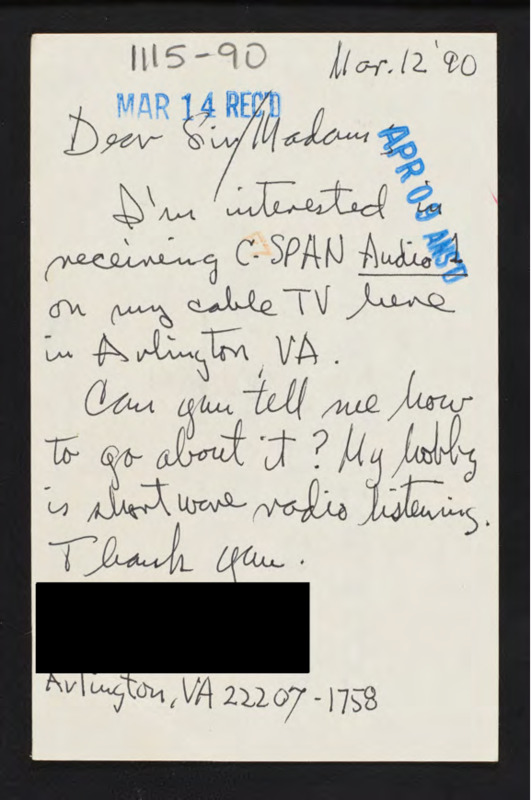 1115-90
Mar. 12 '90
MAR 14 REC'D
Dear Sir/Madam,
APR 09 ANS'D
I'm interested in
receiving C-SPAN Audio 1
on my cable TV here
in Arlington, VA.
Can you tell me how
to go about it? My hobby
is short wave radio listening.
Thank you.
Arlington, VA 22207-1758